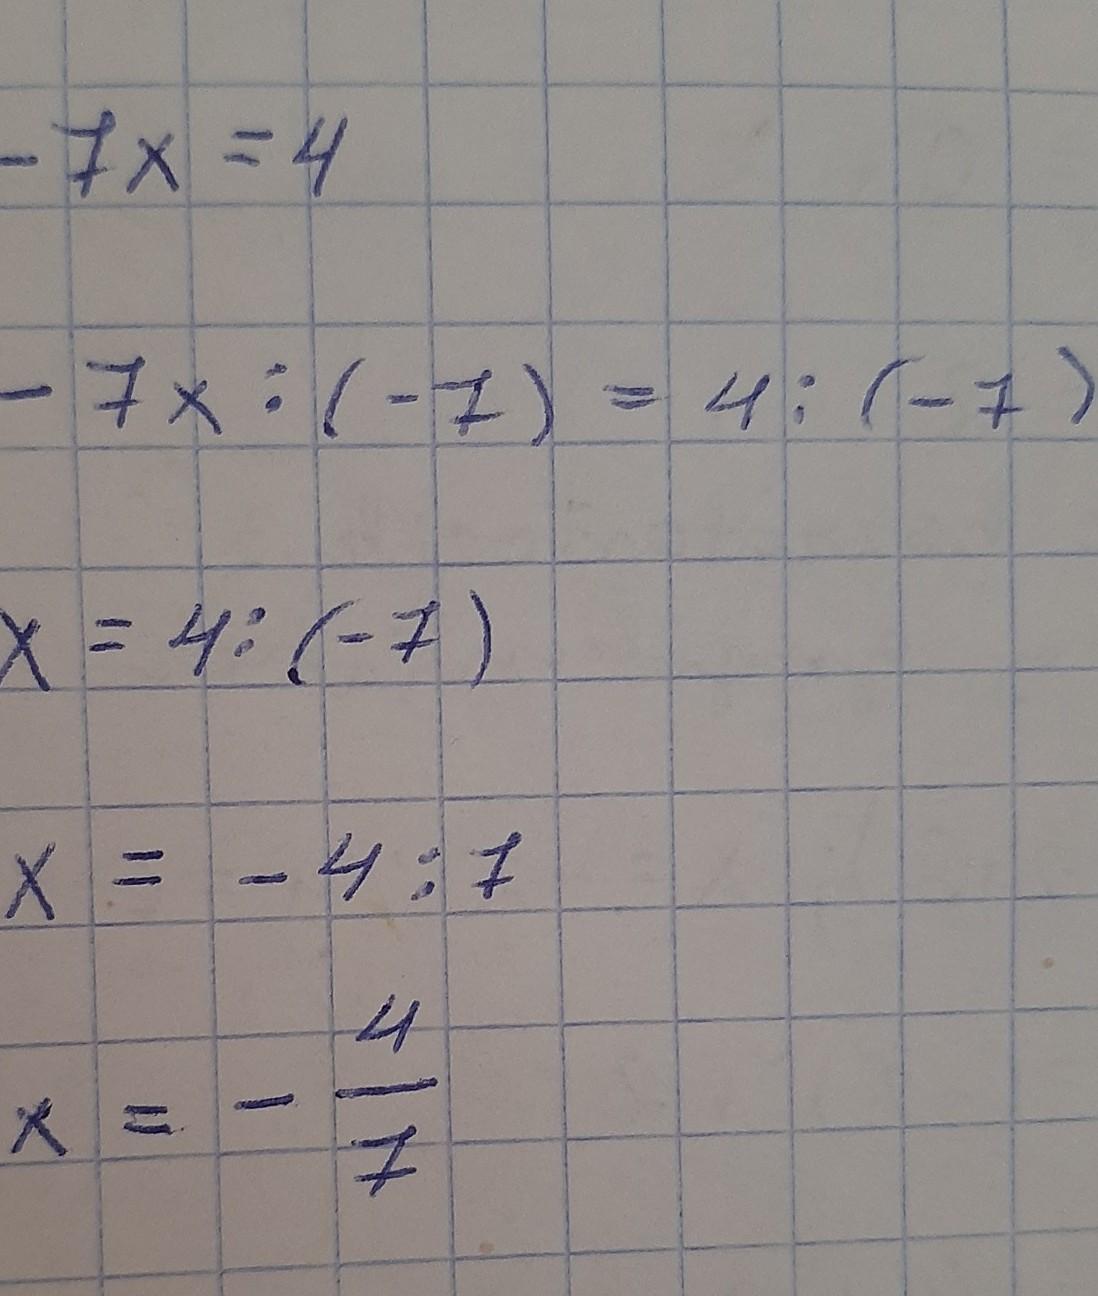 -7x = 4
-7x : (-7) = 4 : (-7)
x = 4 : (-7)
x = -4 : 7
x = - 4/7